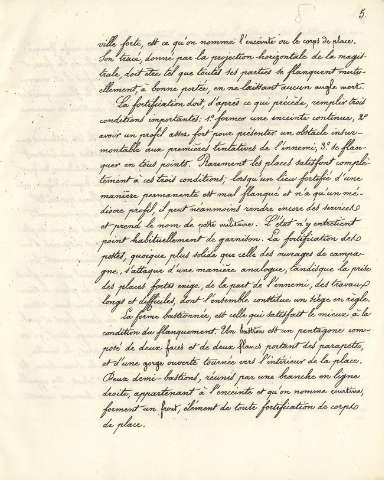 5.
ville forte, est ce qu'on nomme l'enceinte ou le corps de place.
Son tracé, donné par la projection horizontale de la magis-
trale, doit être tel que toutes ses parties se flanquent mutu-
ellement, à bonne portée, en ne laissant aucun angle mort.
La fortification doit, d'après ce qui précède, remplir trois
conditions importantes: 1° former une enceinte continue, 2°
avoir un profil assez fort pour présenter un obstacle insur-
montable aux premières tentatives de l'ennemi, 3° se flan-
quer en tous points. Rarement les places satisfont complè-
tement à ces trois conditions; lorsqu'un lieu fortifié d'une
manière permanente est mal flanqué et n'a qu'un mé-
diocre profil, il peut néanmoins rendre encore des services
et prend le nom de poste militaire. L'état n'y entretient
point habituellement de garnison. La fortification des
postes, quoique plus solide que celle des ouvrages de campa-
gne, s'attaque d'une manière analogue, tandis que la prise
des places fortes exige, de la part de l'ennemi, des travaux
longs et difficiles, dont l'ensemble constitue un siège en règle.
La forme bastionnée, est celle qui satisfait le mieux à la
condition du flanquement. Un bastion est un pentagone com-
posé de deux faces et de deux flancs portant des parapets,
et d'une gorge ouverte tournée vers l'intérieur de la place.
Deux demi-bastions, réunis par une branche en ligne
droite, appartenant à l'enceinte et qu'on nomme courtine,
forment un front, élément de toute fortification de corps
de place.